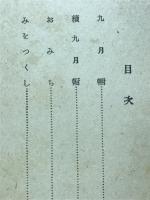 目次
九月幟…………
續九月幟…………
おみち…………
みをつくし…………